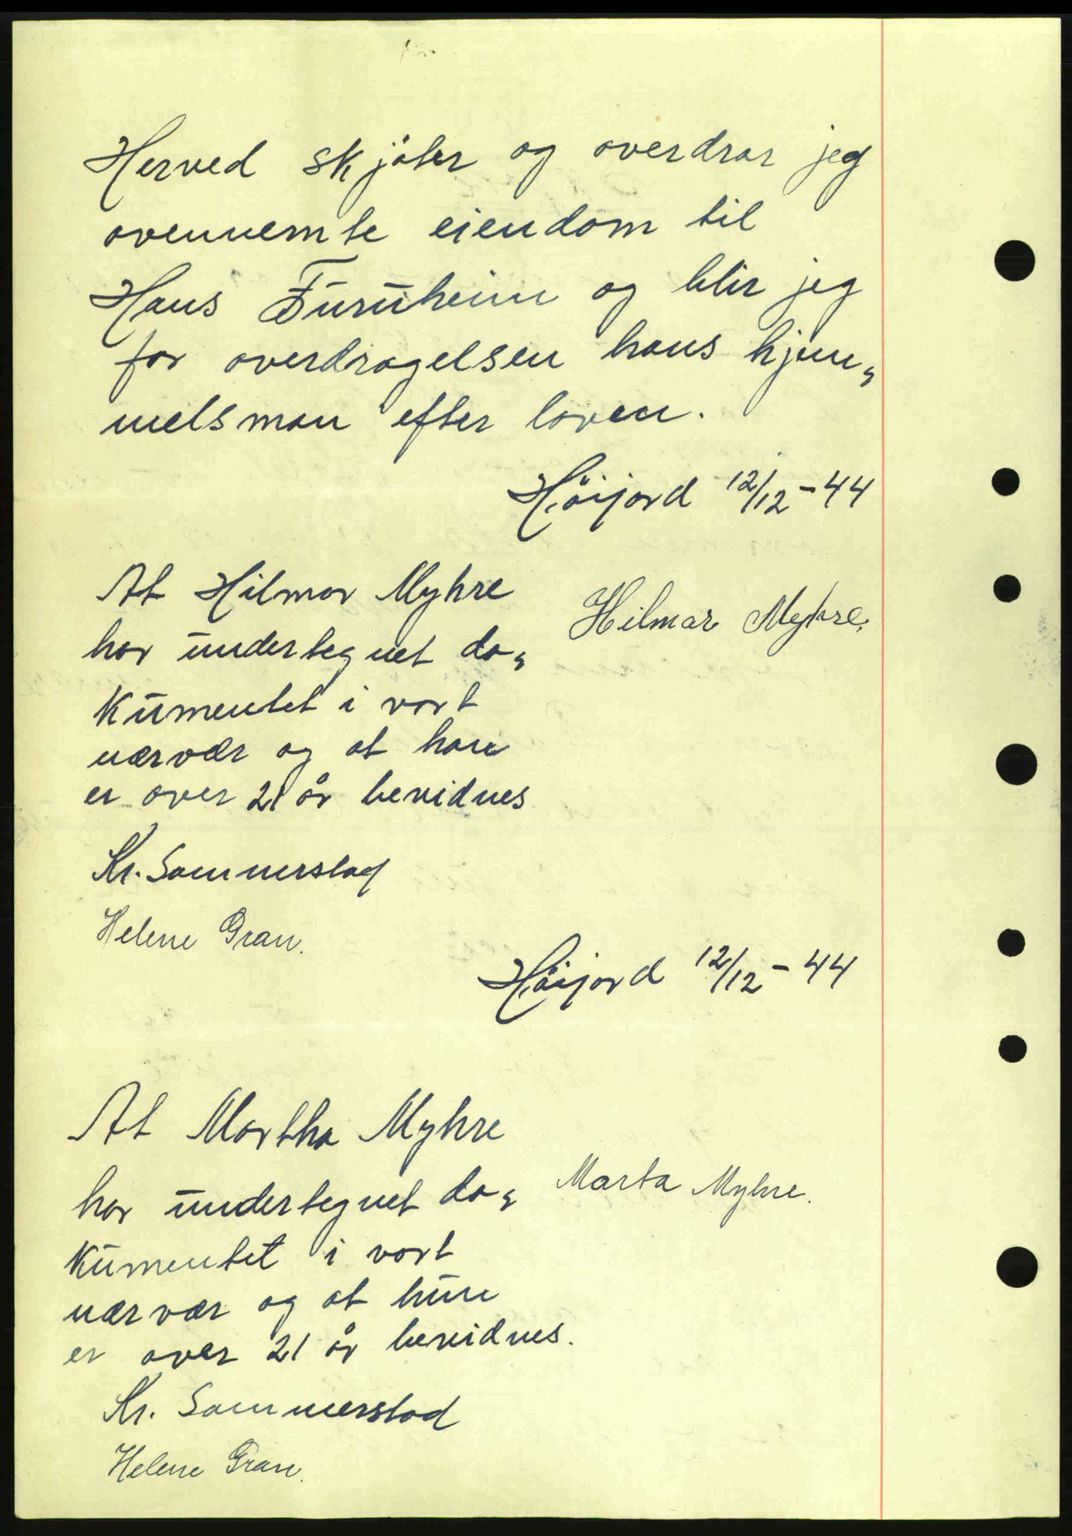 Herved skjöter og overdrar jeg
ovennemte eiendom til
Hans Furuheim og blir jeg
for overdragelsen hans hjem„
melsman efter loven.
Höijord 12/12-44
At Hilmar Myhre
har undertegnet do„
kumentet i vort
nærvær og at han
er over 21 år bevidnes
Hilmar Myhre.
Kr. Sommerstad
Helene Gran.
Höijord 12/12-44
At Martha Myhre
har undertegnet do„
kumentet i vort
nærvær og at hun
er over 21 år bevidnes.
Marta Myhre.
Kr. Sommerstad
Helene Gran.